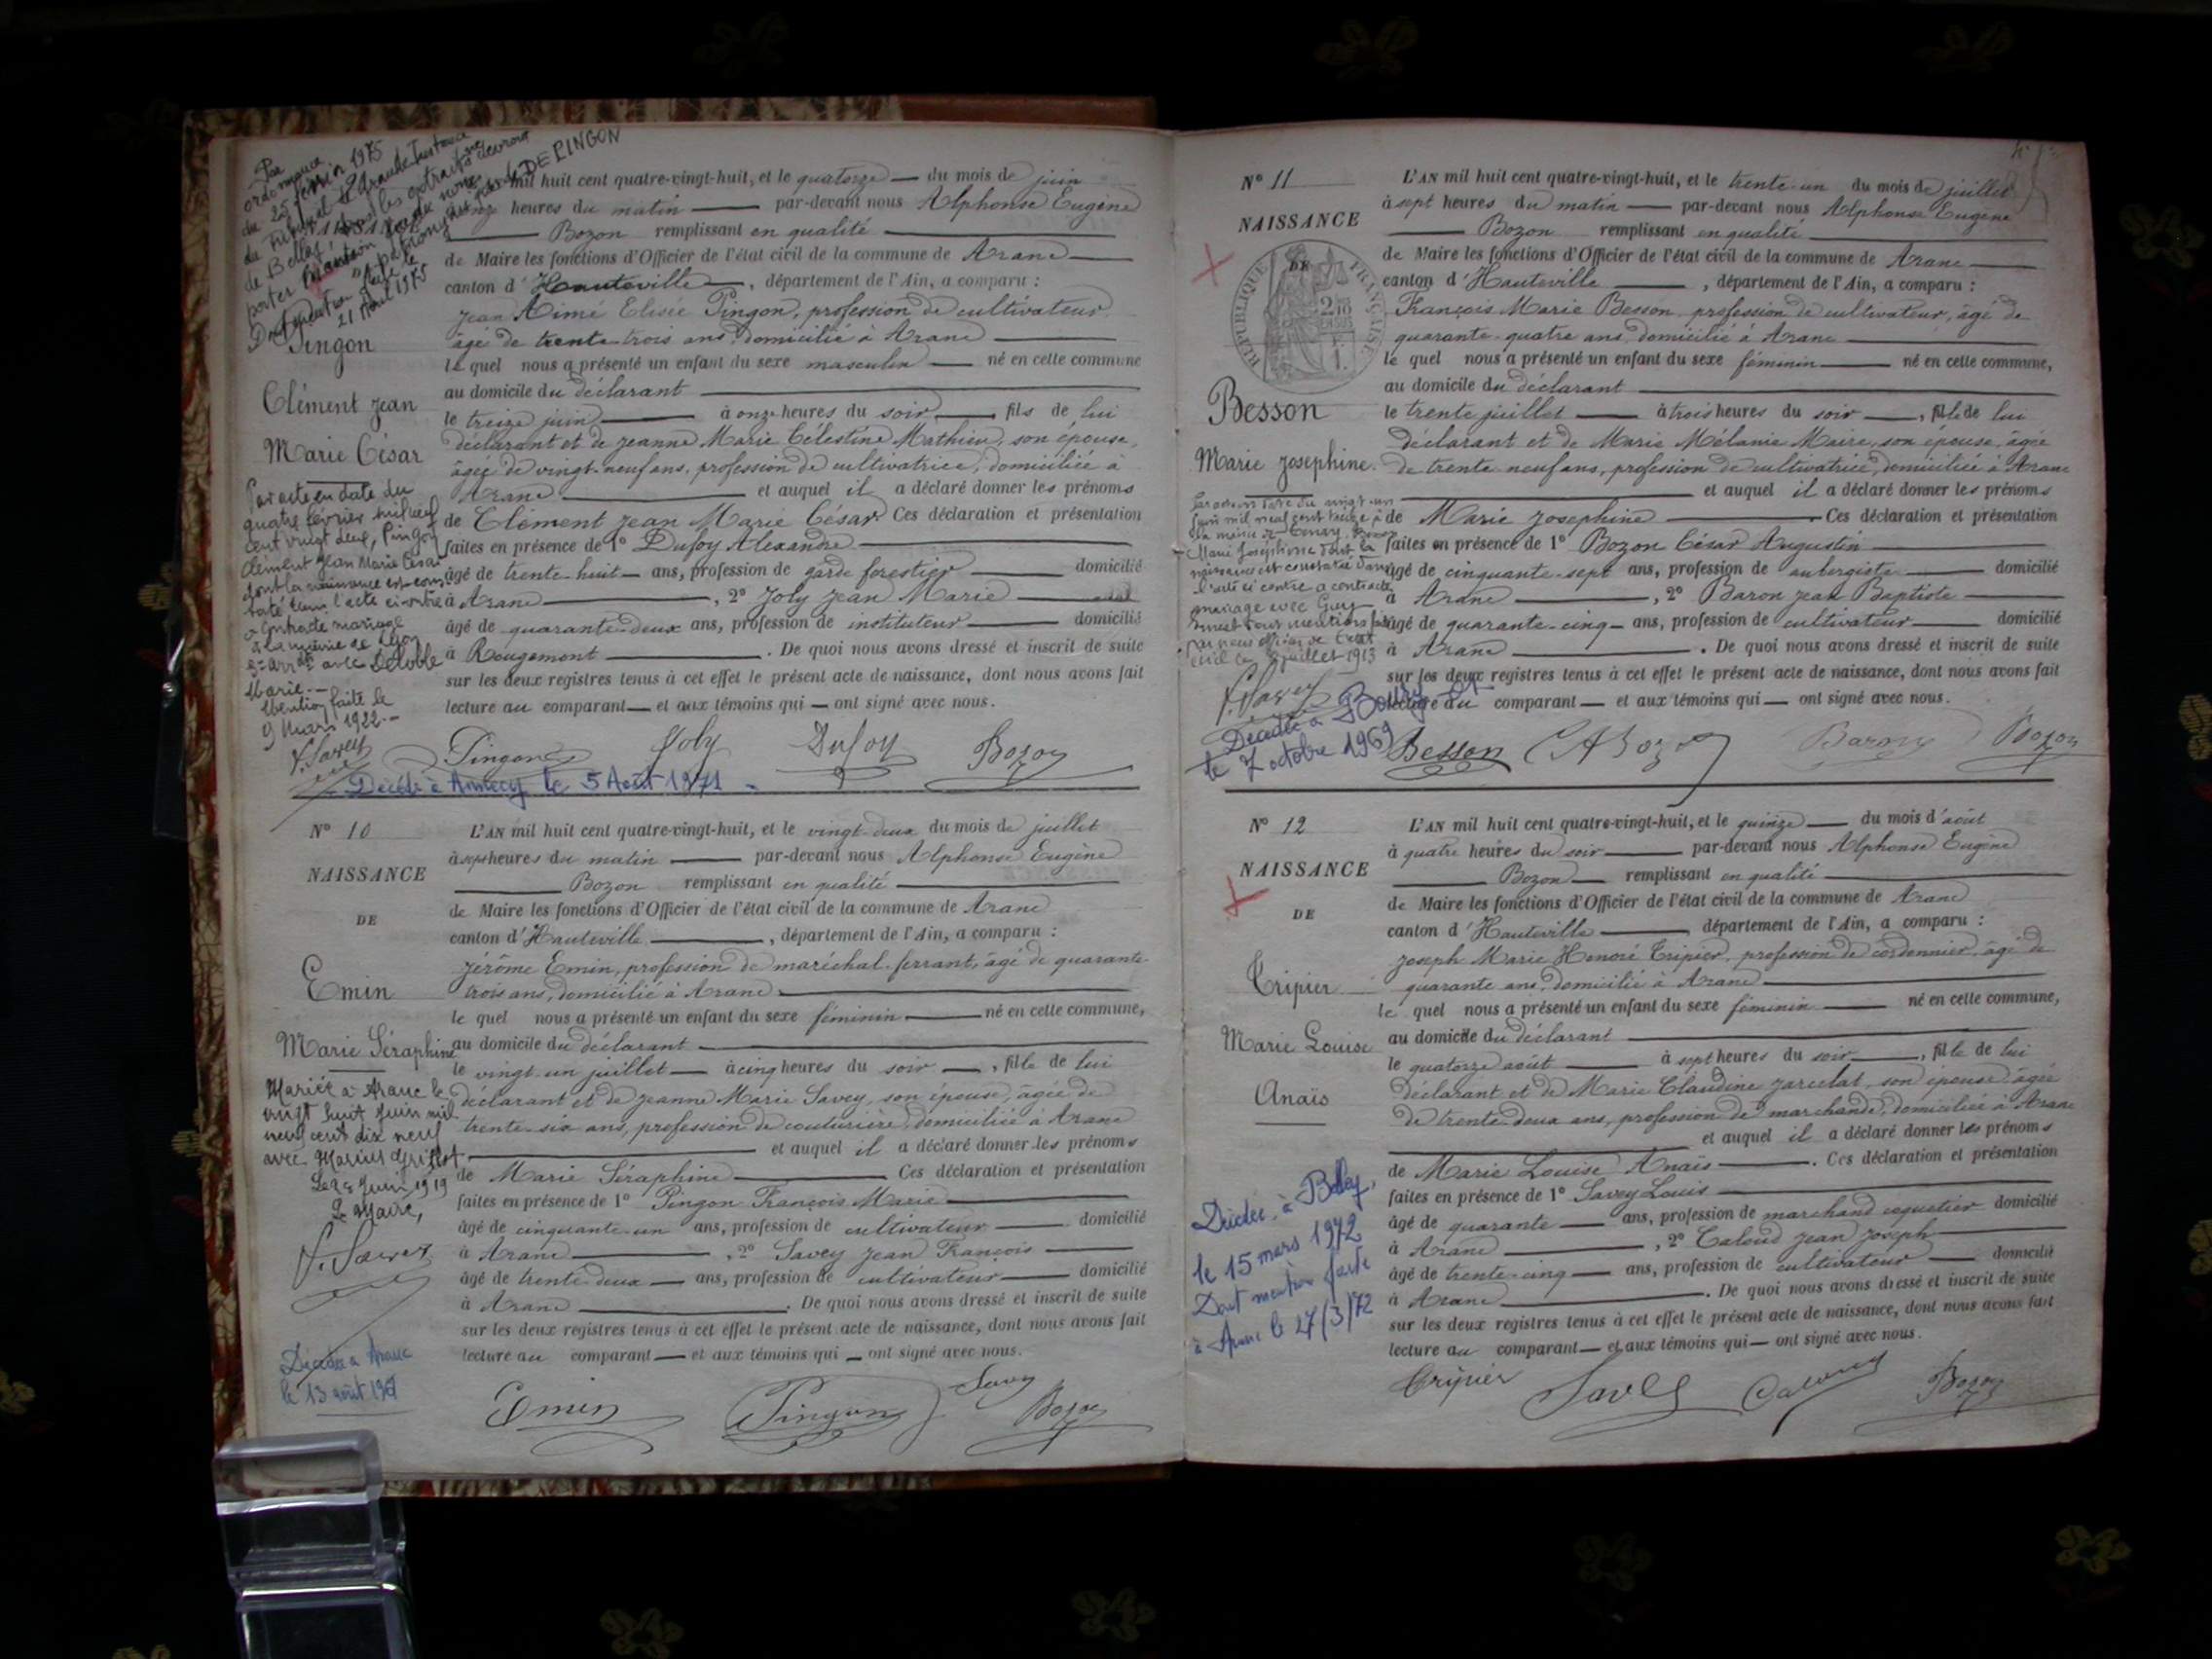 Par
ordonnance
du 25 février 1975
du Tribunal de Grande Instance
de Belley, tous les extraits devront
porter comme nom
patronymique DE PINGON
Mention faite le
21 Avril 1975
Pingon
Clément Jean
Marie César
Par acte en date du
quatre février mil neuf
cent vingt deux, Pingon
Clément Jean Marie César
dont la naissance est cons
taté dans l'acte ci-contre
a contracté mariage
à la mairie de Lyon
arrdt avec Deloble
Marie.-
Mention faite le
9 Mars 1922.-
mil huit cent quatre-vingt-huit, et le quatorze du mois de juin
heures du matin par-devant nous Alphonse Eugène
Bozon remplissant en qualité
de Maire les fonctions d'Officier de l'état civil de la commune de Aranc
canton d'Hauteville, département de l'Ain, a comparu :
Jean Aimé Elisée Pingon, profession de cultivateur
âgé de trente-trois ans, domicilié à Aranc
le quel nous a présenté un enfant du sexe masculin né en cette commune
au domicile du déclarant
le treize juin à onze heures du soir fils de lui
déclarant et de Jeanne Marie Célestine Mathieu, son épouse,
âgée de vingt-neuf ans, profession de cultivatrice, domiciliée à
Aranc et auquel il a déclaré donner les prénoms
de Clément Jean Marie César. Ces déclaration et présentation
faites en présence de 1° Dufoy Alexandre
âgé de trente-huit ans, profession de garde forestier domicilié
à Aranc, 2° Joly Jean Marie
âgé de quarante-deux ans, profession de instituteur domicilié
à Rougemont. De quoi nous avons dressé et inscrit de suite
sur les deux registres tenus à cet effet le présent acte de naissance, dont nous avons fait
lecture au comparant et aux témoins qui ont signé avec nous.
Pingon Joly Dufoy Bozon
Décédé à Annecy le 5 Août 1971
N° 10
NAISSANCE
DE
Emin
Marie Séraphine
Mariée à Aranc le
vingt huit juin mil
neuf cent dix neuf
avec Marius Grillet
Le 28 Juin 1919
Le Maire,
Décédée à Aranc
le 13 août
L'AN mil huit cent quatre-vingt-huit, et le vingt-deux du mois de juillet
à sept heures du matin par-devant nous Alphonse Eugène
Bozon remplissant en qualité
de Maire les fonctions d'Officier de l'état civil de la commune de Aranc
canton d'Hauteville, département de l'Ain, a comparu :
Jérôme Emin, profession de maréchal-ferrant, âgé de quarante
trois ans, domicilié à Aranc
le quel nous a présenté un enfant du sexe féminin né en cette commune,
au domicile du déclarant
le vingt-un juillet à cinq heures du soir, fille de lui
déclarant et de Jeanne Marie Savey, son épouse, âgée de
trente-six ans, profession de couturière, domiciliée à Aranc
et auquel il a déclaré donner les prénoms
de Marie Séraphine Ces déclaration et présentation
faites en présence de 1° Pingon François Marie
âgé de cinquante-un ans, profession de cultivateur domicilié
à Aranc, 2° Savey Jean François
âgé de trente-deux ans, profession de cultivateur domicilié
à Aranc. De quoi nous avons dressé et inscrit de suite
sur les deux registres tenus à cet effet le présent acte de naissance, dont nous avons fait
lecture au comparant et aux témoins qui ont signé avec nous.
Emin Pingon Savey Bozon
N° 11
NAISSANCE
DE
REPUBLIQUE FRANÇAISE
Besson
Marie Josephine.
Par acte en date du vingt-un
juin mil neuf cent treize à
la mairie de Besson
Marie Josephine dont la
naissance est constatée dans
l'acte ci contre a contracté
mariage avec
par nous officier de l'état
civil le juillet 1913
Décédée à Bourg
le 7 octobre 1969
L'AN mil huit cent quatre-vingt-huit, et le trente-un du mois de juillet
à sept heures du matin par-devant nous Alphonse Eugène
Bozon remplissant en qualité
de Maire les fonctions d'Officier de l'état civil de la commune de Aranc
canton d'Hauteville, département de l'Ain, a comparu :
François Marie Besson, profession de cultivateur, âgé de
quarante-quatre ans, domicilié à Aranc
le quel nous a présenté un enfant du sexe féminin né en cette commune,
au domicile du déclarant
le trente juillet à trois heures du soir, fille de lui
déclarant et de Marie Mélanie Maire, son épouse, âgée
de trente-neuf ans, profession de cultivatrice, domiciliée à Aranc
et auquel il a déclaré donner les prénoms
de Marie Josephine Ces déclaration et présentation
faites en présence de 1° Bozon César Augustin
âgé de cinquante-sept ans, profession de aubergiste domicilié
à Aranc, 2° Baron Jean Baptiste
âgé de quarante-cinq ans, profession de cultivateur domicilié
à Aranc. De quoi nous avons dressé et inscrit de suite
sur les deux registres tenus à cet effet le présent acte de naissance, dont nous avons fait
lecture au comparant et aux témoins qui ont signé avec nous.
Besson Baron Bozon
N° 12
NAISSANCE
DE
Tripier
Marie Louise
Anaïs
Décédée à Belley,
le 15 mars 1972
Dont mention faite
à Aranc le 27/3/72
L'AN mil huit cent quatre-vingt-huit, et le quinze du mois d'août
à quatre heures du soir par-devant nous Alphonse Eugène
Bozon remplissant en qualité
de Maire les fonctions d'Officier de l'état civil de la commune de Aranc
canton d'Hauteville département de l'Ain, a comparu :
Joseph Marie Honoré Tripier, profession de cordonnier, âgé de
quarante ans, domicilié à Aranc
le quel nous a présenté un enfant du sexe féminin né en cette commune,
au domicile du déclarant
le quatorze août à sept heures du soir, fille de lui
déclarant et de Marie Claudine Jarcelat, son épouse âgée
de trente-deux ans, profession de marchande, domiciliée à Aranc
et auquel il a déclaré donner les prénoms
de Marie Louise Anaïs. Ces déclaration et présentation
faites en présence de 1° Savey Louis
âgé de quarante ans, profession de marchand coquetier domicilié
à Aranc, 2° Caloud Jean Joseph
âgé de trente-cinq ans, profession de cultivateur domicilié
à Aranc. De quoi nous avons dressé et inscrit de suite
sur les deux registres tenus à cet effet le présent acte de naissance, dont nous avons fait
lecture au comparant et aux témoins qui ont signé avec nous.
Tripier Savey Caloud Bozon